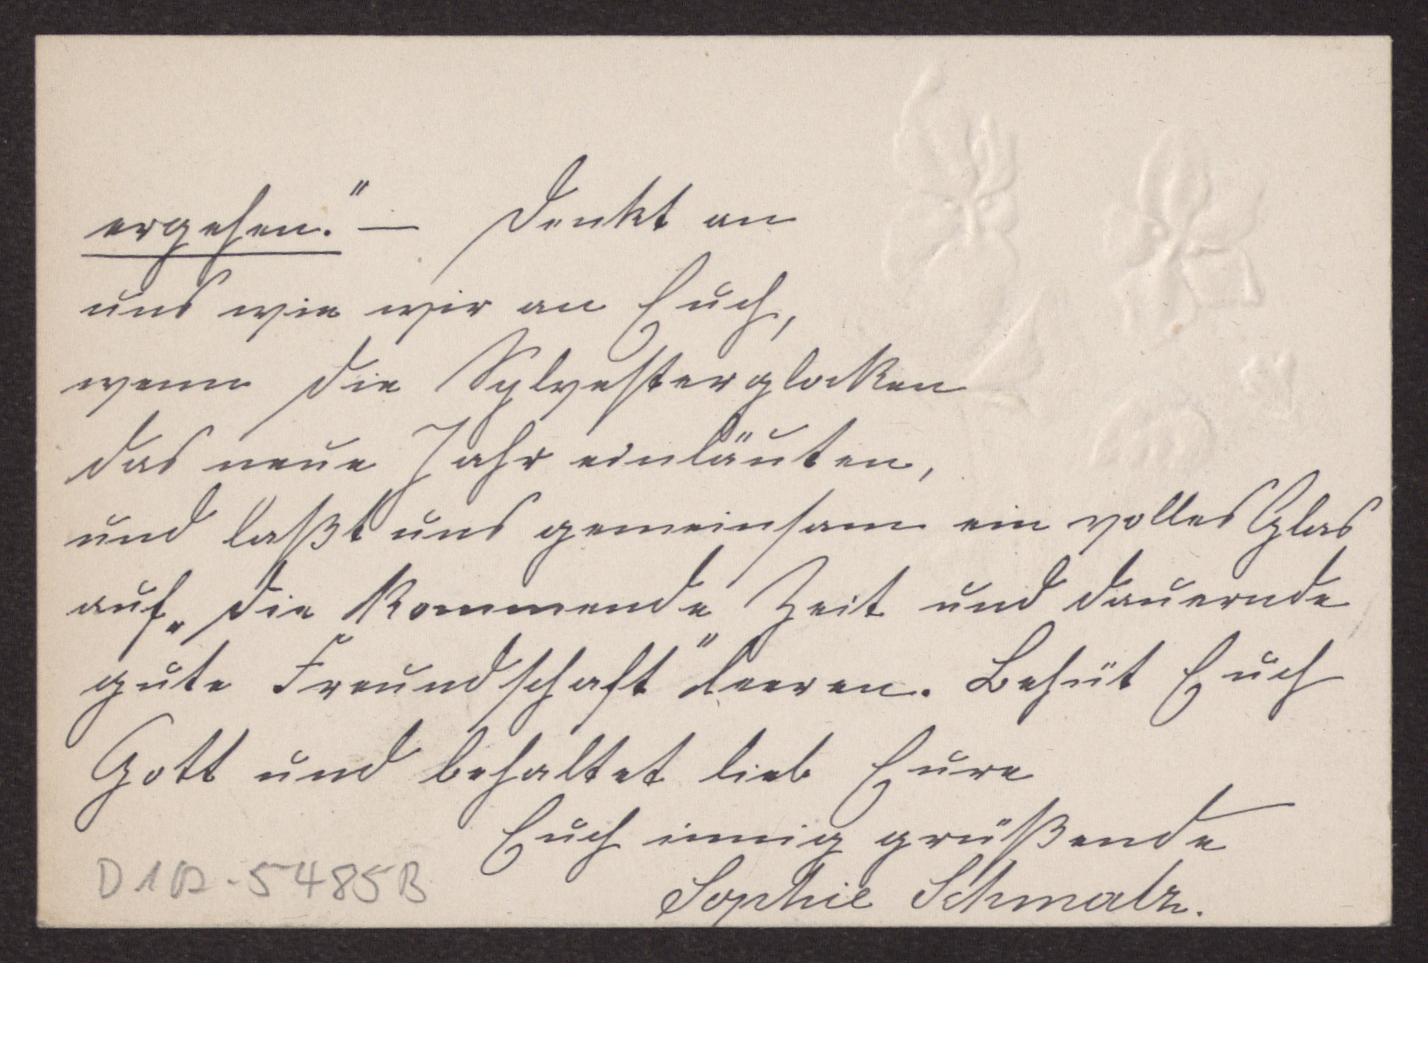 ergehen." — Denkt an
uns wie wir an Euch,
wenn die Sylvesterglocken
das neue Jahr einläuten,
und laßt uns gemeinsam ein volles Glas
auf „die kommende Zeit und dauernde
gute Freundschaft" leeren. Behüt Euch
Gott und behaltet lieb Eure
Euch innig grüßende
Sophie Schmalz.
D1A-5485B